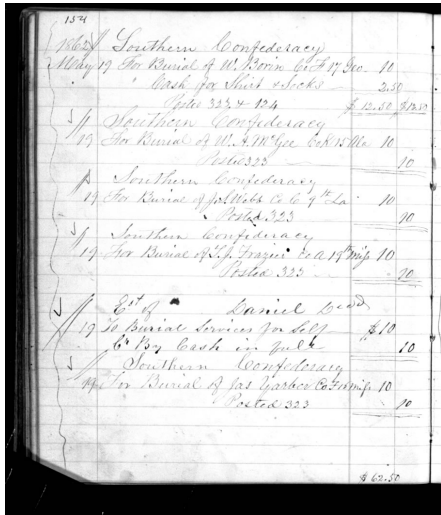 154
1862 Southern Confederacy
May 19 For Burial of W. Borin Co F 17 Geo. 10
" Cash for Shirt & Socks 2.50
Posted 323 & 124 $12.50 $12.50
Southern Confederacy
19 For Burial of W. A. McGee Co K 15 Ala 10
Posted 323 10
Southern Confederacy
19 For Burial of Webb Co C 9th La 10
Posted 323 10
Southern Confederacy
19 For Burial of T. J. Frazier Co A 19th Miss 10
Posted 323 10
Est of Daniel Dead
19 To Burial Services for Self $10
Cr By Cash in full 10
Southern Confederacy
19 For Burial of Jas Yarber Co Miss 10
Posted 323 10
$62.50